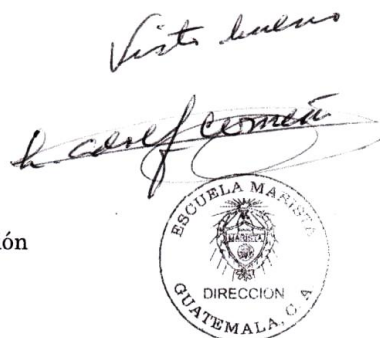 Visto bueno
ión
ESCUELA MARISTA
MARISTA
DIRECCION
GUATEMALA, C. A